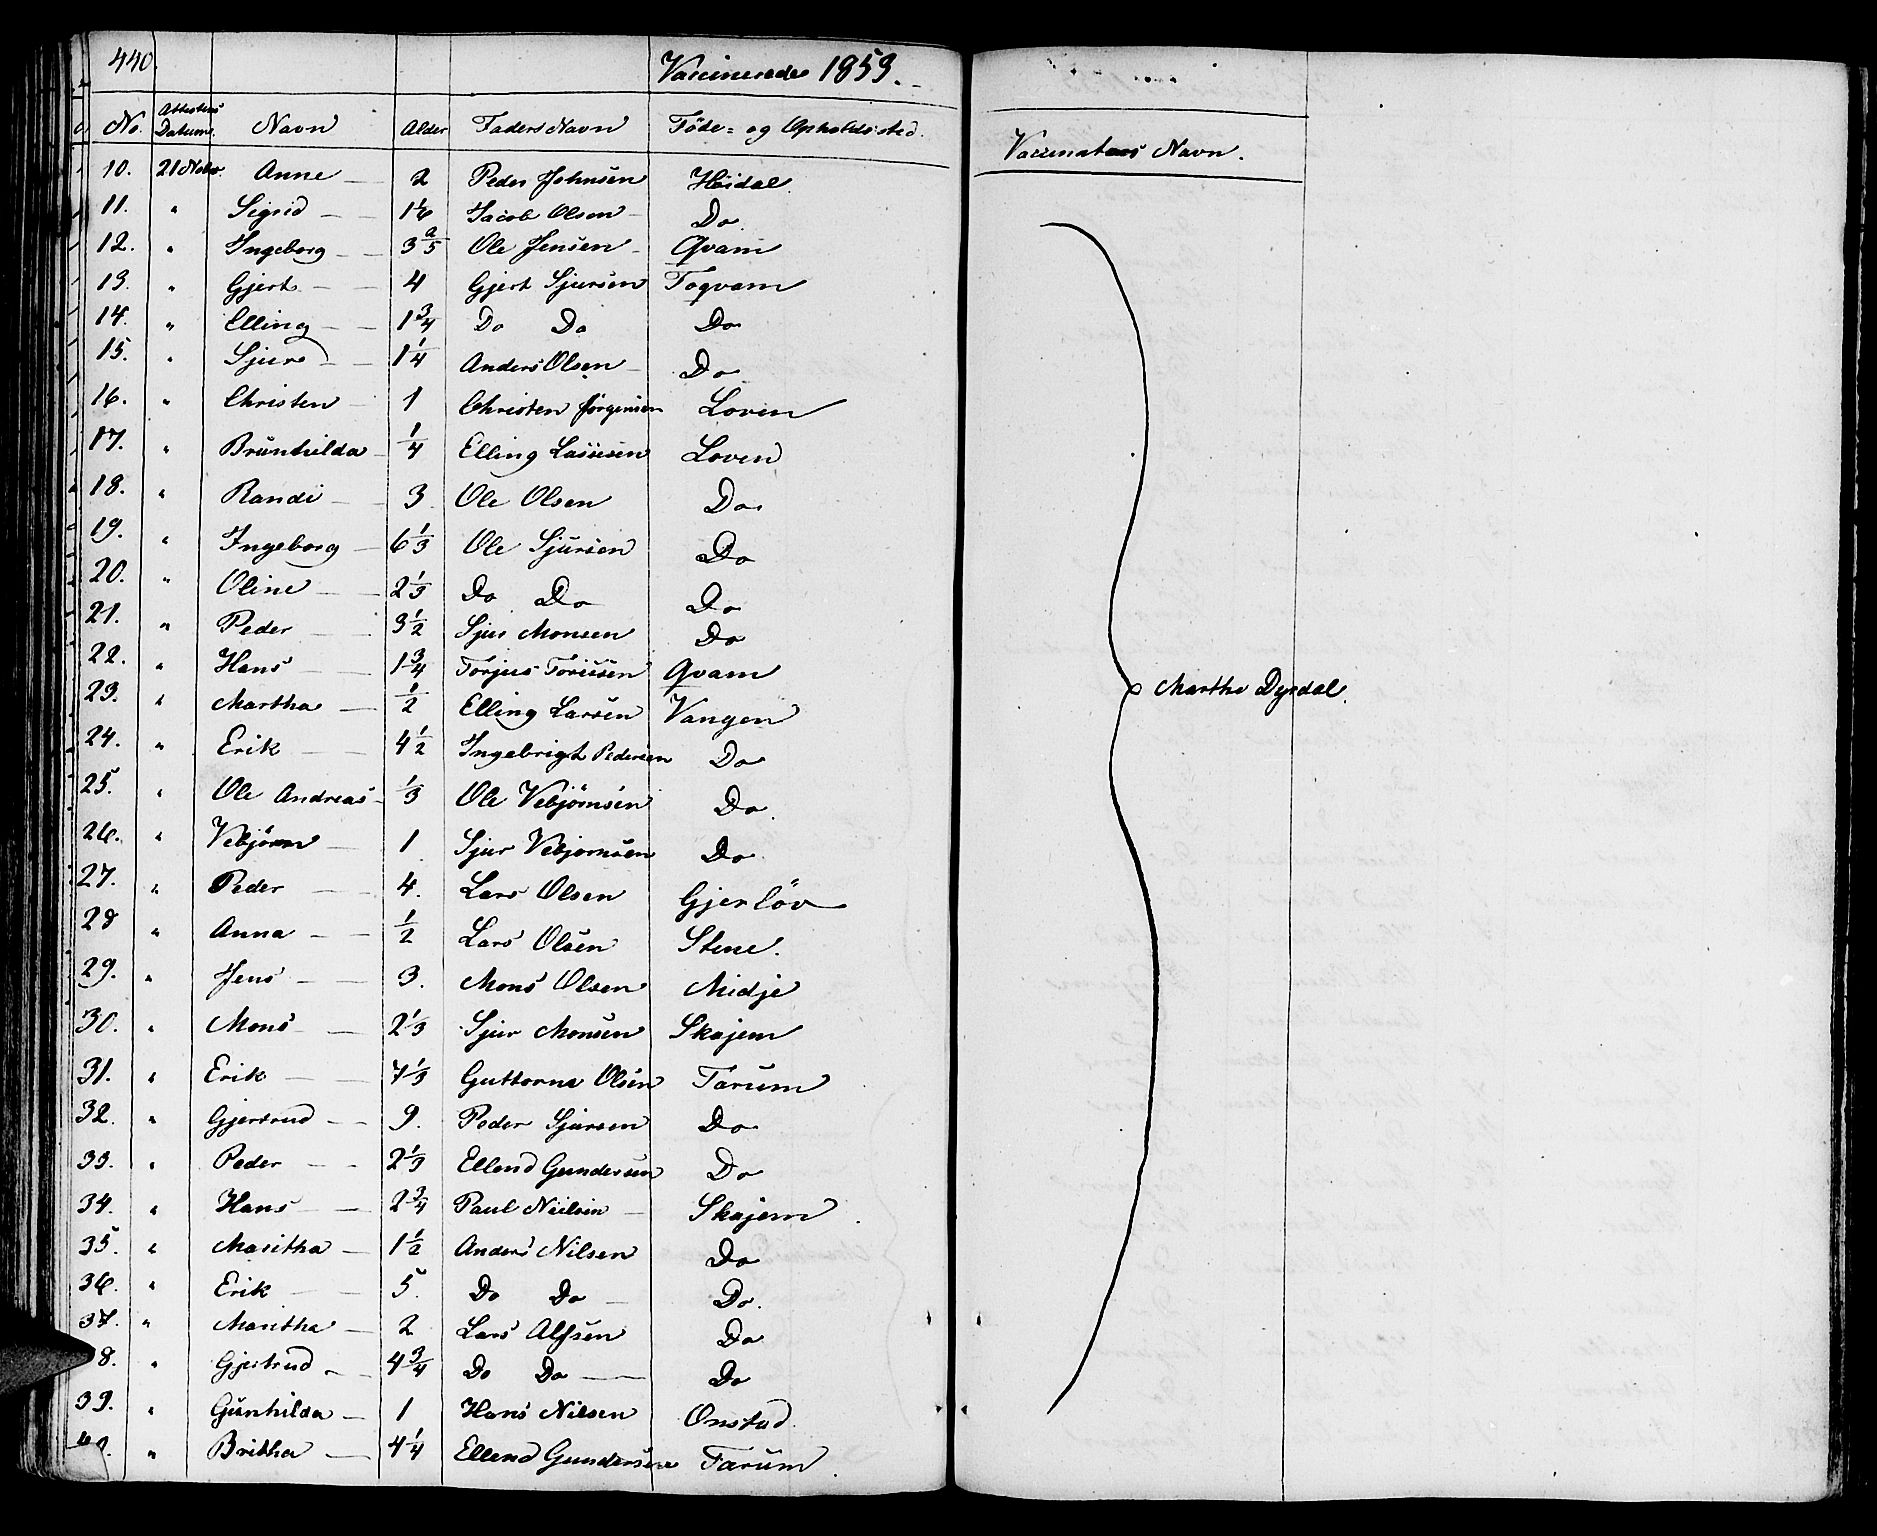 440. Vaccinerede 1853.
No. Attestens Datum. Navn Alder Faders Navn Föde- og Opholdssted. Vaccinateurs Navn.
10. 21 Nobr. Anne 2 Peder Johnsen Høidal.
11. " Sigrid Jacob Olsen Do
12. " Ingeborg 3 2/5 Ole Jensen Qvam
13. " Gjert 4 Gjert Sjursen Foqvam
14. " Elling 1 3/4 Do Do Do
15. " Sjur 1 1/4 Anders Olsen Do
16. " Christen 1 Christen Jörgensen Loven
17. " Brünhilda 1/4 Elling Loven
18. " Randi 3 Ole Olsen Do
19. " Ingeborg 6 1/3 Ole Sjursen Do
20. " Oline 2 1/3 Do Do Do
21. " Peder 3 1/2 Sjur Monsen Do
22. " Hans 1 3/4 Torjus Qvam
23. " Martha 1/2 Elling Larsen Vangen
24. " Erik 4 1/2 Ingebrigt Pedersen Do
25. " Ole Andreas 1/3 Ole Vebjörnsen Do
26. " Vebjörn 1 Sjur Vebjornsen Do
27. " Peder 4. Lars Olsen Gjerlöv
28 " Anna 1/2 Lars Olsen Stene.
29. " Jens 3. Mons Olsen Midje
30. " Mons 2 1/3 Sjur Monsen Skajem
31. " Erik 7 1/3 Guttorm Olsen Farum
32. " Gjertrud 9. Peder Sjursen Do
33. " Peder 2 1/3 Ellend Gundersen Do
34. " Hans 2 3/4 Paul Nielsen Skajem
35. " Maritha 1 1/2 Anders Nilsen Do
36. " Erik 5. Do Do Do.
37. " Maritha 2 Lars Alfsen Do
8. " Gjertrud 4 3/4 Do Do Do
39. " Günhilda 1 Hans Nilsen Onstad
" Britha 4 1/4 Ellend Gundersen Farum
Marthe Dyrdal.